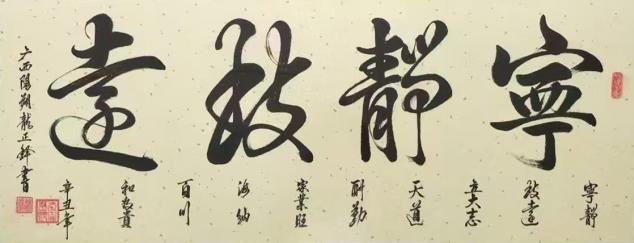 寧靜致遠
寧靜
致遠
立大志
天道
酬勤
家業旺
海納
百川
和為貴
辛丑年
广西陽朔龍正鋒書